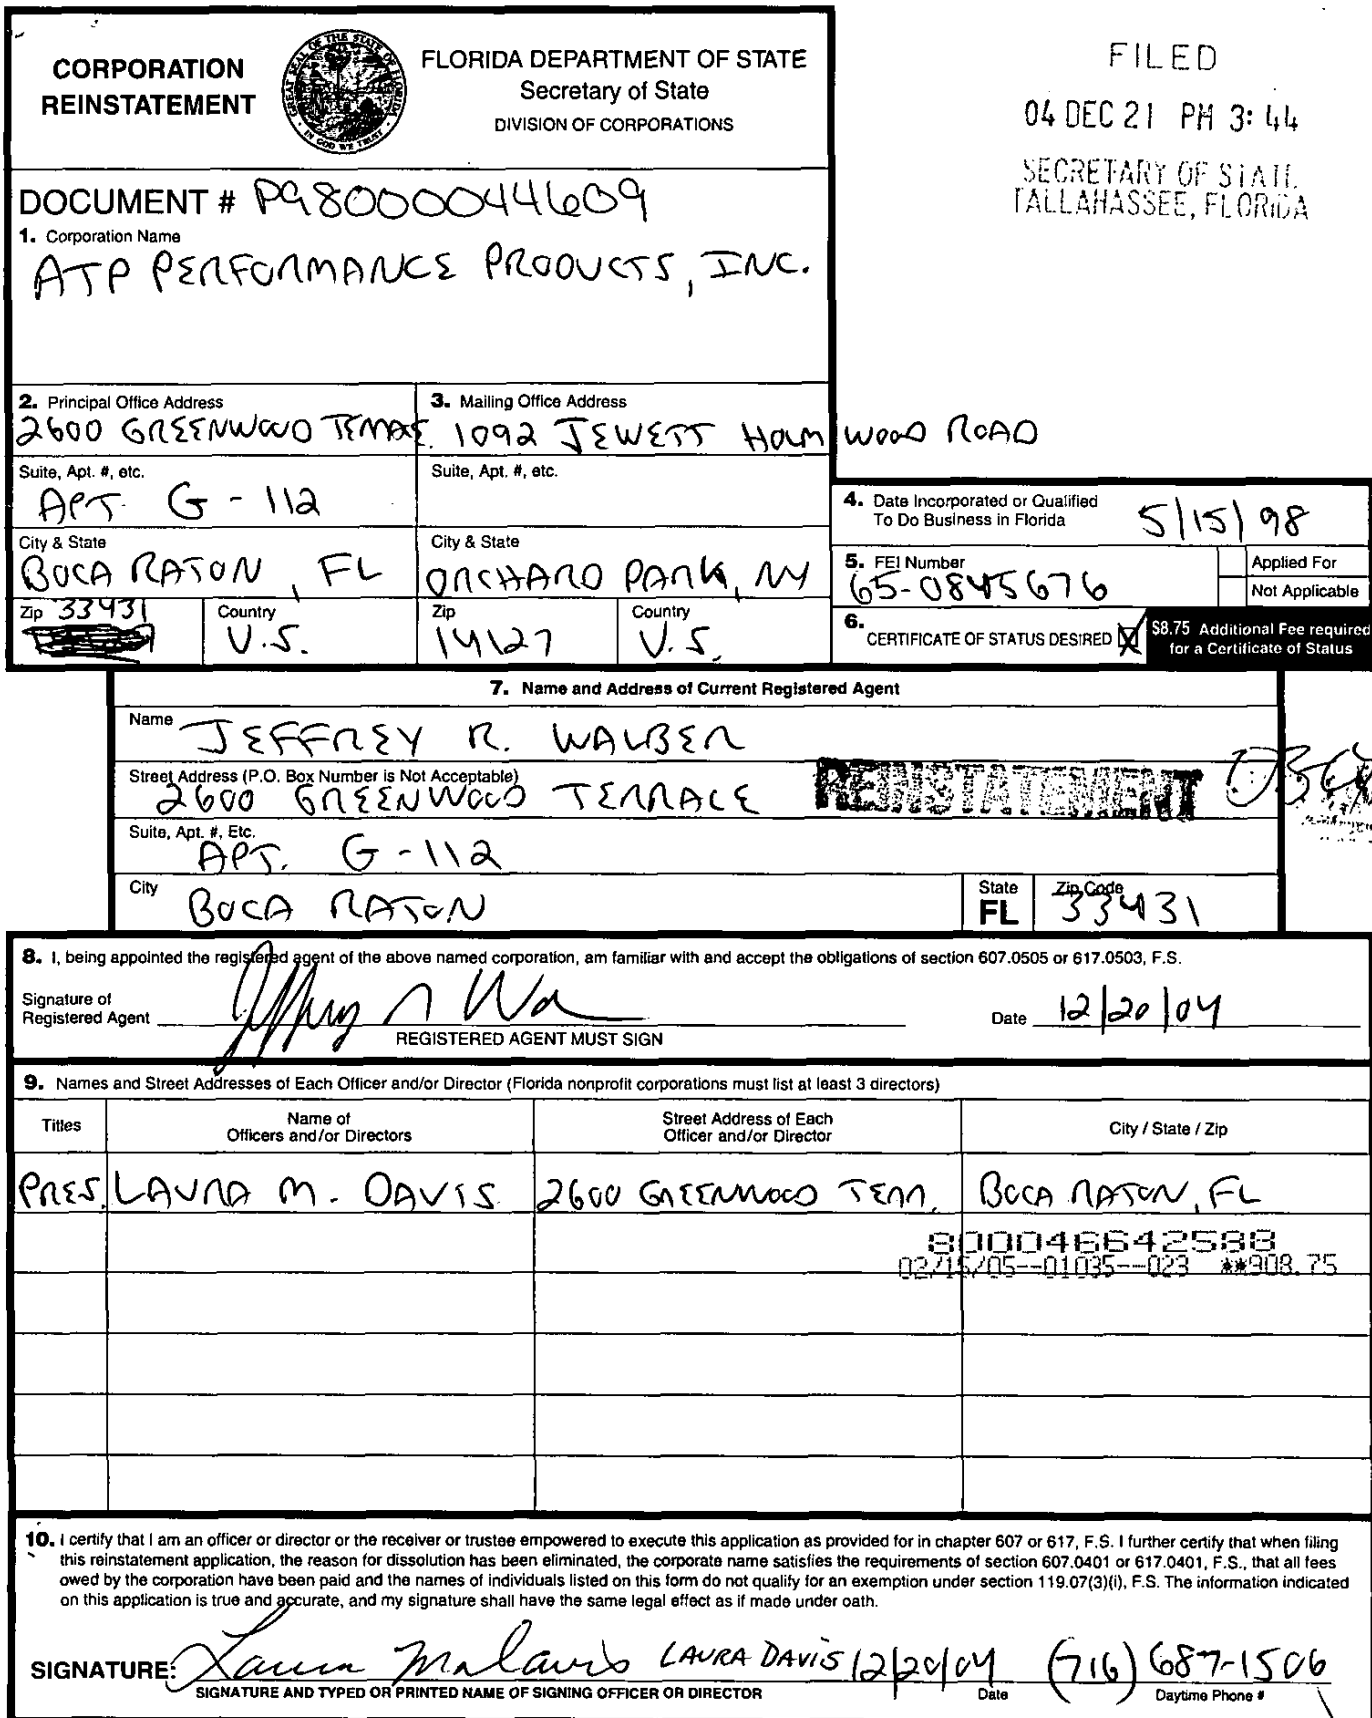 CORPORATION
REINSTATEMENT
GREAT SEAL OF THE STATE OF FLORIDA
IN GOD WE TRUST
FLORIDA DEPARTMENT OF STATE
Secretary of State
DIVISION OF CORPORATIONS
FILED
04 DEC 21 PM 3:44
SECRETARY OF STATE
TALLAHASSEE, FLORIDA
DOCUMENT # P98000044609
1. Corporation Name
ATP PERFORMANCE PRODUCTS, INC.
2. Principal Office Address
2600 GREENWOOD
3. Mailing Office Address
1092 JEWETT HOLM WOOD ROAD
Suite, Apt. #, etc.
APT. G-112
Suite, Apt. #, etc.
City & State
BOCA RATON, FL
City & State
ORCHARD PARK, NY
Zip 33431
Country
U.S.
Zip
14127
Country
U.S.
4. Date Incorporated or Qualified
To Do Business in Florida
5/15/98
5. FEI Number
65-0845676
Applied For
Not Applicable
6.
CERTIFICATE OF STATUS DESIRED X
$8.75 Additional Fee required
for a Certificate of Status
7. Name and Address of Current Registered Agent
Name JEFFREY R. WALBER
Street Address (P.O. Box Number is Not Acceptable)
2600 GREENWOOD TERRACE
REINSTATEMENT
Suite, Apt. #, Etc.
APT. G-112
City
BOCA RATON
State
FL
Zip Code
33431
8. I, being appointed the registered agent of the above named corporation, am familiar with and accept the obligations of section 607.0505 or 617.0503, F.S.
Signature of
Registered Agent
REGISTERED AGENT MUST SIGN
Date 12/20/04
9. Names and Street Addresses of Each Officer and/or Director (Florida nonprofit corporations must list at least 3 directors)
Titles
Name of
Officers and/or Directors
Street Address of Each
Officer and/or Director
City / State / Zip
PRES. LAURA M. DAVIS 2600 GREENWOOD TERR. BOCA RATON, FL
800046642588
02/15/05--01035--023 **908.75
10. I certify that I am an officer or director or the receiver or trustee empowered to execute this application as provided for in chapter 607 or 617, F.S. I further certify that when filing
this reinstatement application, the reason for dissolution has been eliminated, the corporate name satisfies the requirements of section 607.0401 or 617.0401, F.S., that all fees
owed by the corporation have been paid and the names of individuals listed on this form do not qualify for an exemption under section 119.07(3)(i), F.S. The information indicated
on this application is true and accurate, and my signature shall have the same legal effect as if made under oath.
SIGNATURE: Laura M Davis LAURA DAVIS 12/20/04 (716) 687-1506
SIGNATURE AND TYPED OR PRINTED NAME OF SIGNING OFFICER OR DIRECTOR
Date
Daytime Phone #